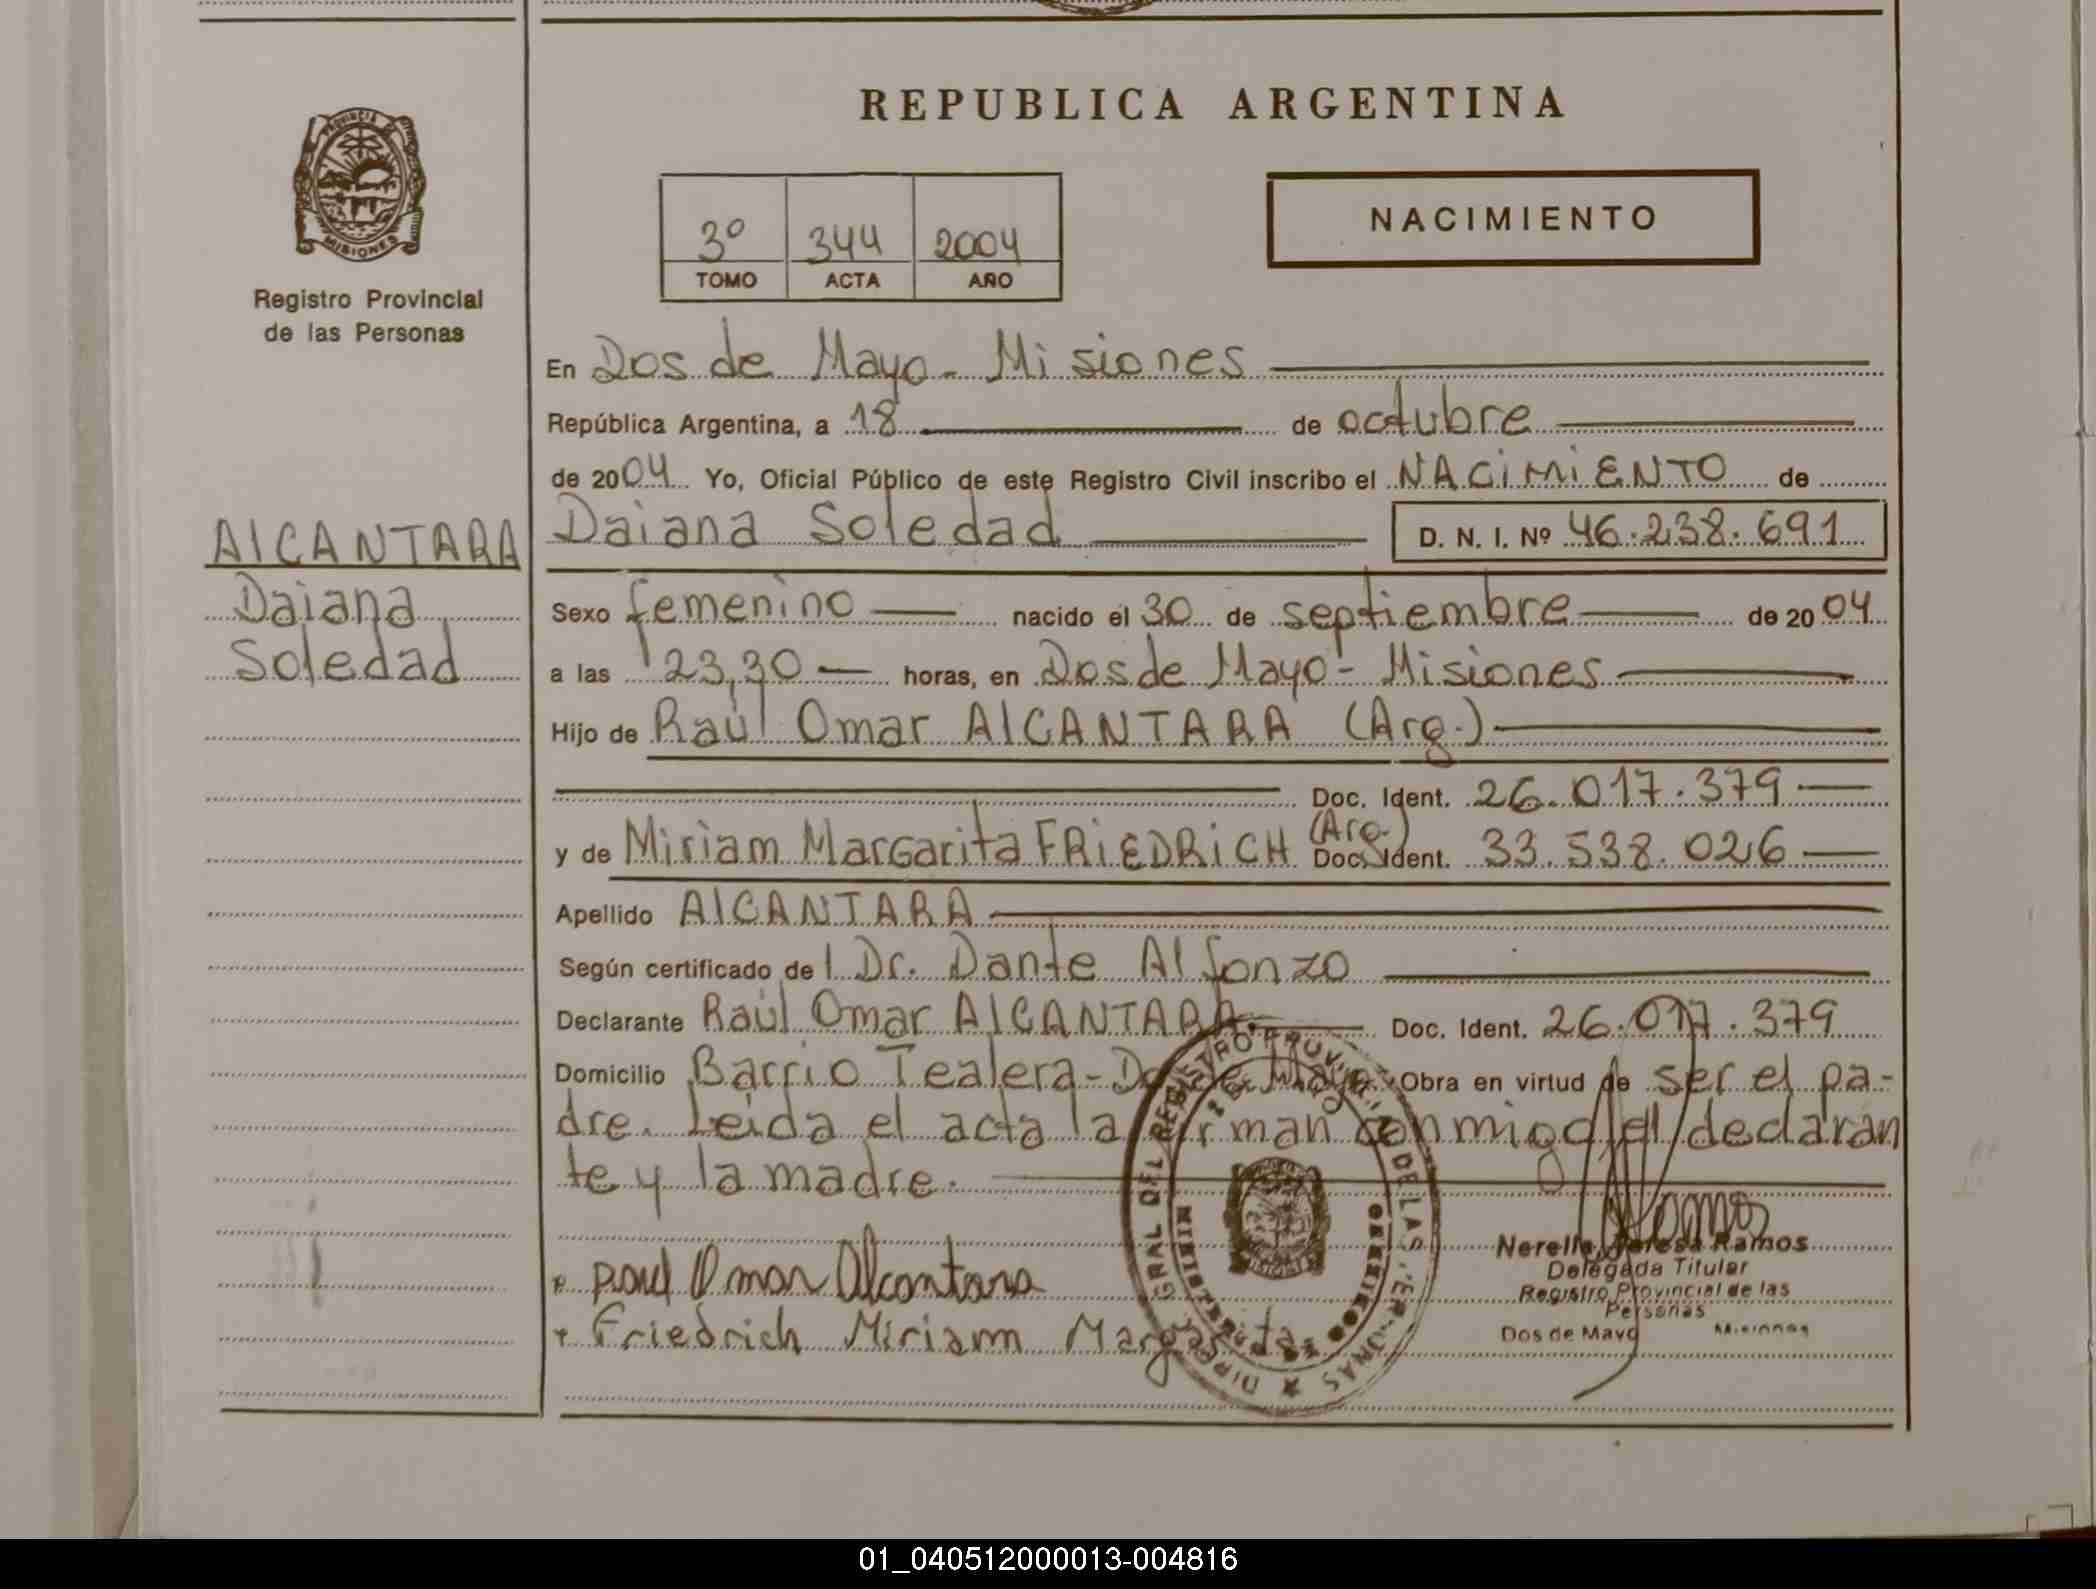 REPUBLICA ARGENTINA
PROVINCIA DE
MISIONES
Registro Provincial
de las Personas
3º 344 2004
TOMO ACTA AÑO
NACIMIENTO
En Dos de Mayo - Misiones
República Argentina, a 18 de octubre
de 2004 Yo, Oficial Público de este Registro Civil inscribo el NACIMIENTO de
AlCANTARA
Daiana
Soledad
Daiana Soledad D. N. I. Nº 46.238.691
Sexo femenino nacido el 30 de septiembre de 2004
a las 23,30 horas, en Dos de Mayo - Misiones
Hijo de Raúl Omar AlCANTARA (Arg.)
Doc. Ident. 26.017.379
y de Miriam Margarita FRiEDRiCH (Arg.) Doc. Ident. 33.538.026
Apellido AlCANTARA
Según certificado del Dr. Dante Alfonzo
Declarante Raúl Omar AlCANTARA. Doc. Ident. 26.017.379
Domicilio Barrio Tealera - Dos de Mayo. Obra en virtud de ser el pa-
dre. Leída el acta la firman conmigo el declaran
te y la madre.
Raul Omar Alcantara
Friedrich Miriam Margarita
DIRECCION GRAL DEL REGISTRO PROVINCIAL DE LAS PERSONAS
MISIONES
Ramos
Nerella Teresa Ramos
Delegada Titular
Registro Provincial de las
Personas
Dos de Mayo Misiones
01_040512000013-004816